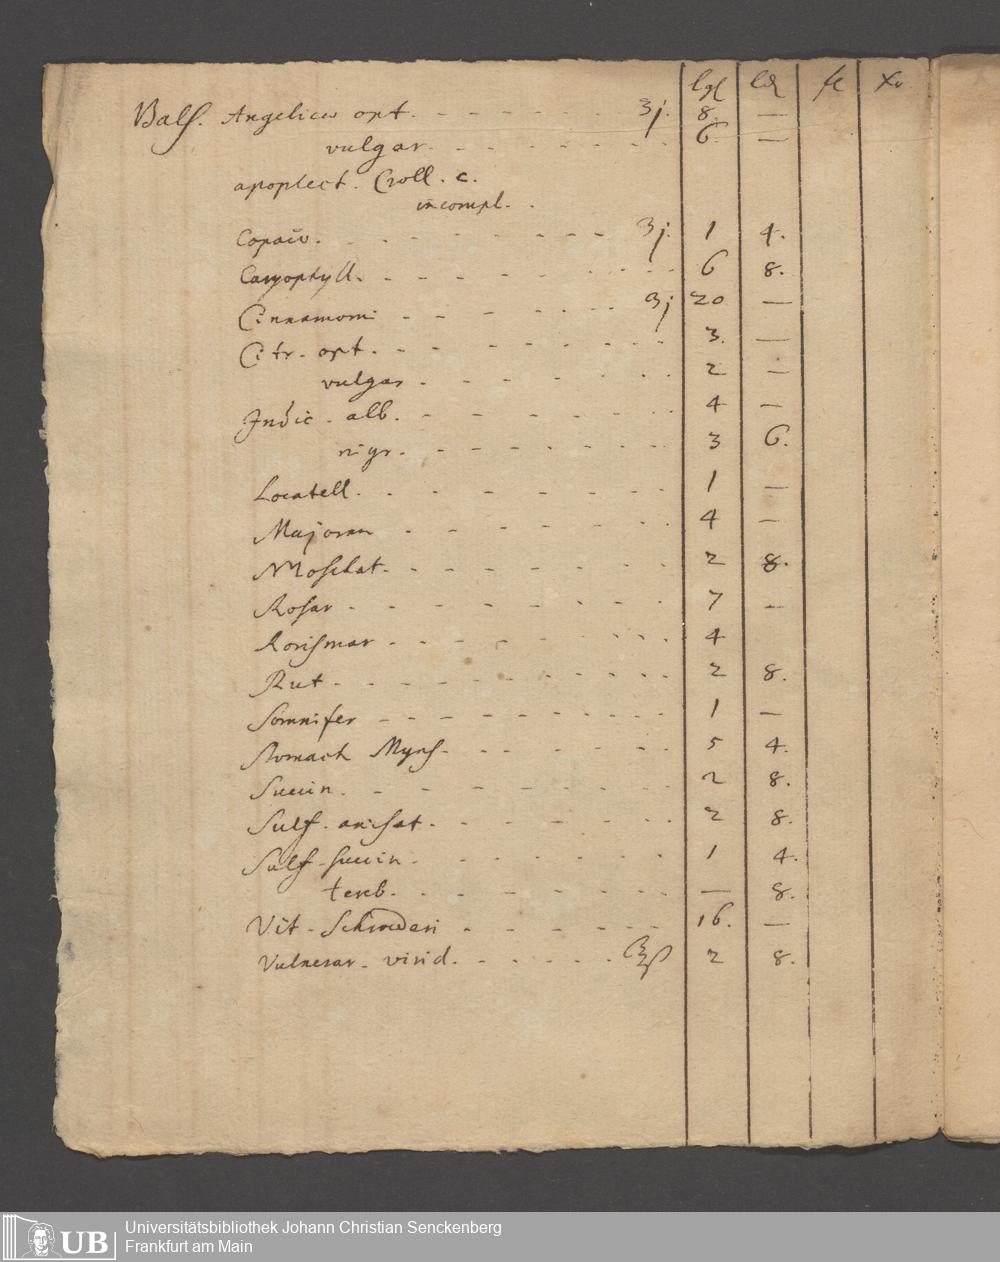 lgl ld fl Xr
Balf. Angelicæ opt. ʒj. 8. —
vulgar. 6. —
apoplect. Croll. c.
incompl.
Copaiv. ʒj. 1 4.
Caryophyll. 6 8.
Cinnamomi ℈j 20 —
Citr. opt. 3. —
vulgar 2 —
Indic. alb. 4 —
nigr. 3 6.
Locatell. 1 —
Majoran 4 —
Moschat. 2 8.
Rosar 7 —
Rorismar 4
Rut 2 8.
Somnifer 1 —
Stomach Myns. 5 4.
Succin. 2 8.
Sulf. anisat. 2 8.
Sulf. succin. 1 4.
tereb. — 8.
Vit. Schroederi 16. —
Vulnerar. virid. ℥ß 2 8.
UB
Universitätsbibliothek Johann Christian Senckenberg
Frankfurt am Main